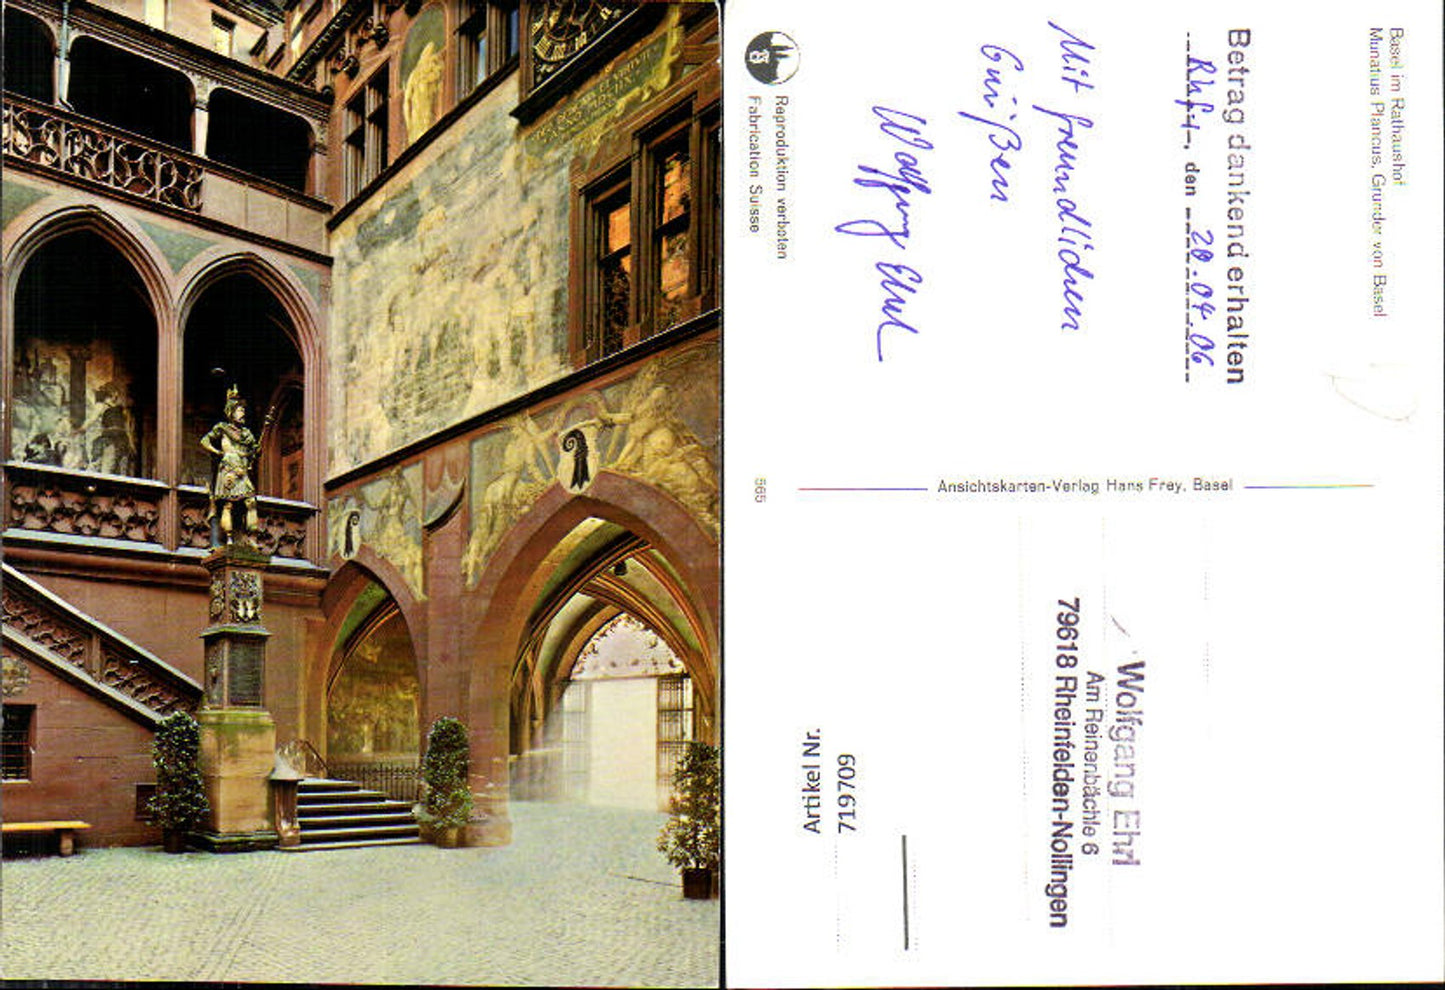 Basel im Rathaushof
Munatius Plancus, Gründer von Basel
Betrag dankend erhalten
Rhf., den 20.04.06
Mit freundlichen
Grüßen
Wolfgang Ehrl
Reproduktion verboten
Fabrication Suisse
565
Ansichtskarten-Verlag Hans Frey, Basel
Wolfgang Ehrl
Am Reinenbächle 6
79618 Rheinfelden-Nollingen
Artikel Nr.
719709